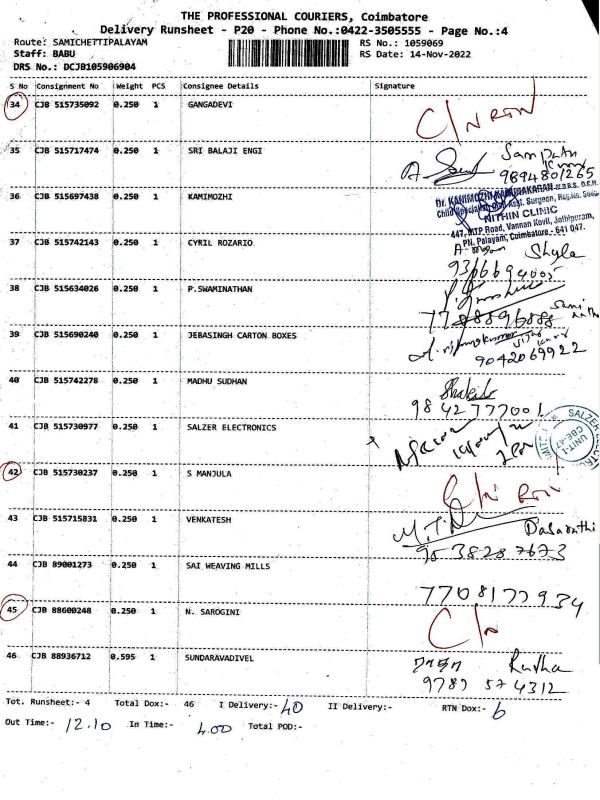 THE PROFESSIONAL COURIERS, Coimbatore
Delivery Runsheet - P20 - Phone No.:0422-3505555 - Page No.:4
Route: SAMICHETTIPALAYAM RS No.: 1059069
Staff: BABU RS Date: 14-Nov-2022
DRS No.: DCJB105906904
S No Consignment No Weight PCS Consignee Details Signature
34 CJB 515735092 0.250 1 GANGADEVI C/N RTN
35 CJB 515717474 0.250 1 SRI BALAJI ENGI Sampath
9894801265
36 CJB 515697438 0.250 1 KAMIMOZHI
NITHIN CLINIC
447, MTP Road, Vannan Kovil, Jothipuram,
PN. Palayam, Coimbatore - 641 047.
37 CJB 515742143 0.250 1 CYRIL ROZARIO Shyla
38 CJB 515634026 0.250 1 P.SWAMINATHAN
7708896888
39 CJB 515690240 0.250 1 JEBASINGH CARTON BOXES
9042069922
40 CJB 515742278 0.250 1 MADHU SUDHAN
9842777001
41 CJB 515730977 0.250 1 SALZER ELECTRONICS
UNIT-1
CBE-47
42 CJB 515730237 0.250 1 S MANJULA C/N RTN
43 CJB 515715831 0.250 1 VENKATESH Dasarathi
9538287673
44 CJB 89001273 0.250 1 SAI WEAVING MILLS
7708177934
45 CJB 88600248 0.250 1 N. SAROGINI C/N
46 CJB 88936712 0.595 1 SUNDARAVADIVEL Rudha
9789 574312
Tot. Runsheet:- 4 Total Dox:- 46 I Delivery:- 40 II Delivery:- RTN Dox:- 6
Out Time:- 12.10 In Time:- 4.00 Total POD:-